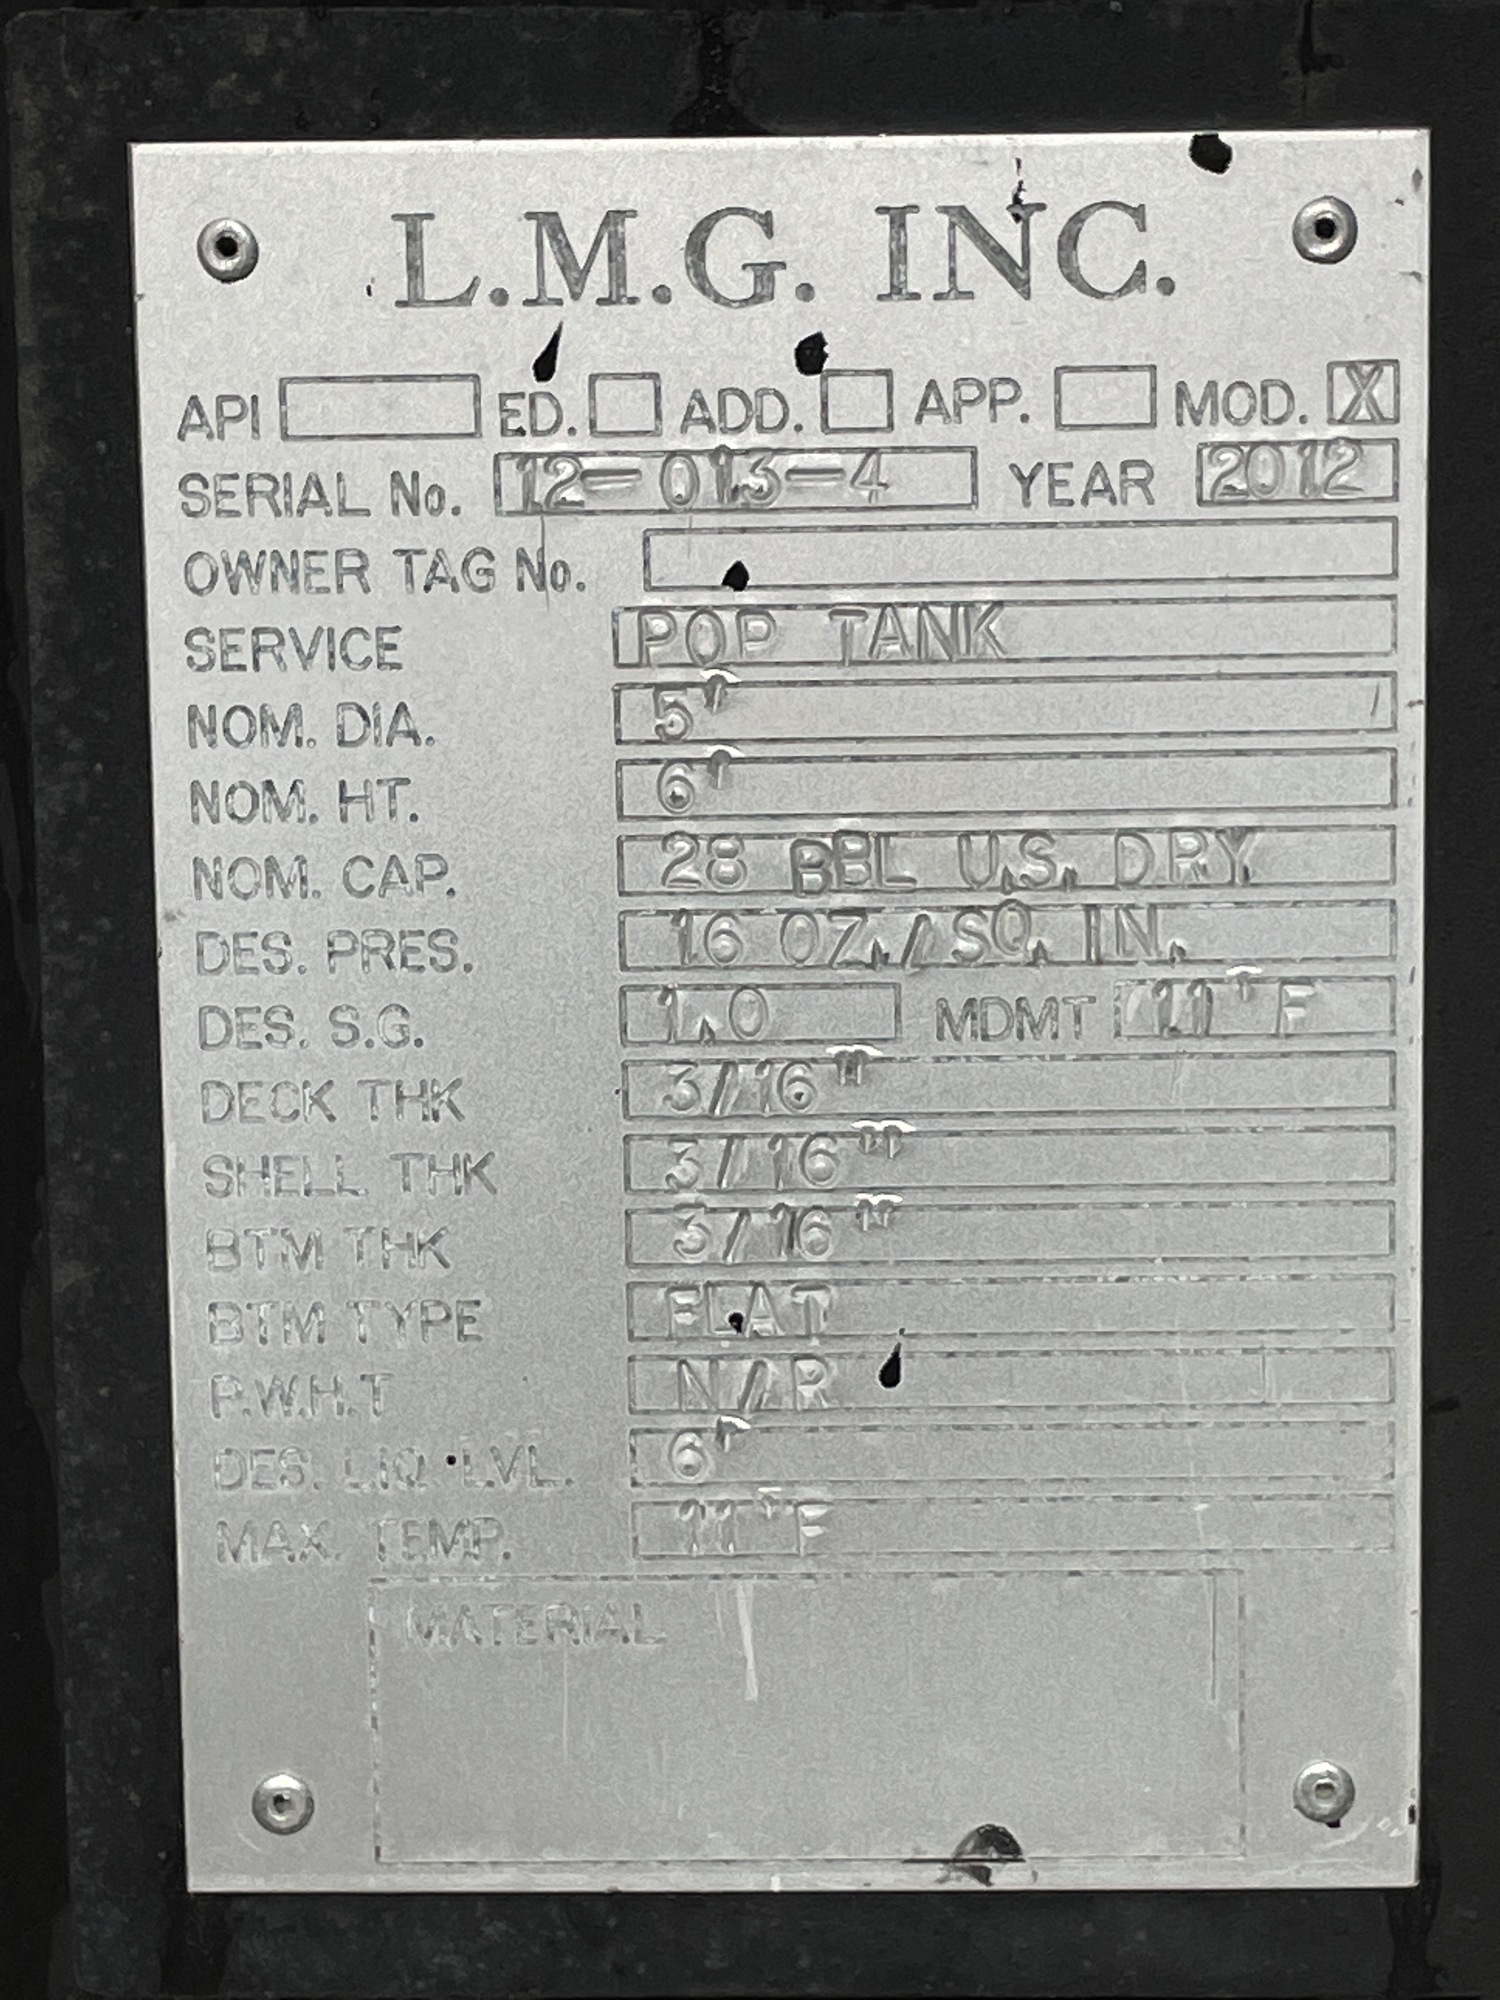 L.M.G. INC.
API ED. ADD. APP. MOD. X
SERIAL No. 12-013-4 YEAR 2012
OWNER TAG No.
SERVICE POP TANK
NOM. DIA. 5'
NOM. HT. 6'
NOM. CAP. 28 BBL U.S. DRY
DES. PRES. 16 OZ./SQ. IN.
DES. S.G. 1.0 MDMT 11°F
DECK THK 3/16"
SHELL THK 3/16"
BTM THK 3/16"
BTM TYPE FLAT
P.W.H.T N/R
DES. LIQ. LVL. 6'
MAX. TEMP. 11°F
MATERIAL